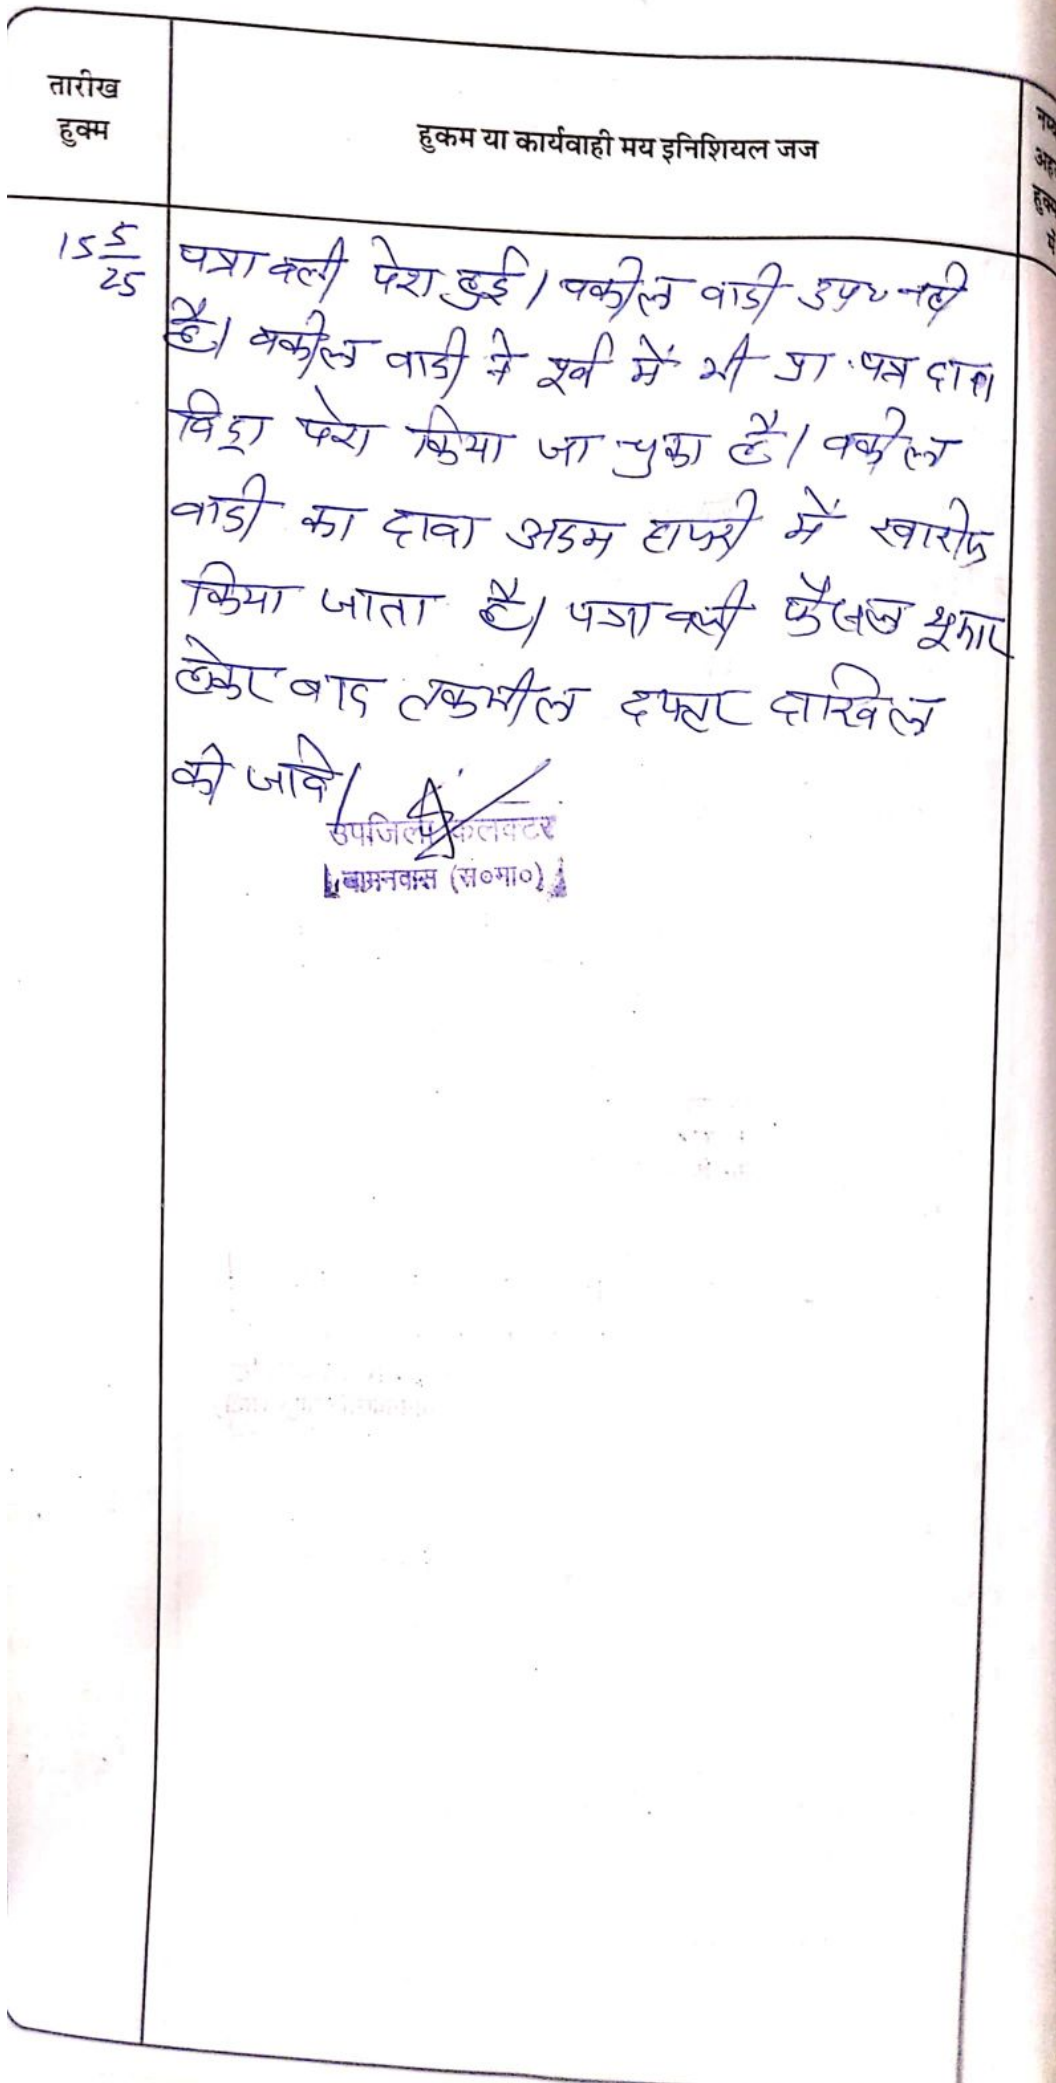 तारीख
हुक्म
हुकम या कार्यवाही मय इनिशियल जज
15 5/25
पत्रावली पेश हुई। वकील वादी उप० नही
है। वकील वादी ने पूर्व में भी प्रा. पत्र दावा
विड्रा पेश किया जा चुका है। वकील
वादी का दावा अदम हाजरी में खारीज
किया जाता है। पत्रावली फैसल शुमार
होकर बाद तकमील दफ्तर दाखिल
की जावे।
उपजिला कलक्टर
बामनवास (स०मा०)